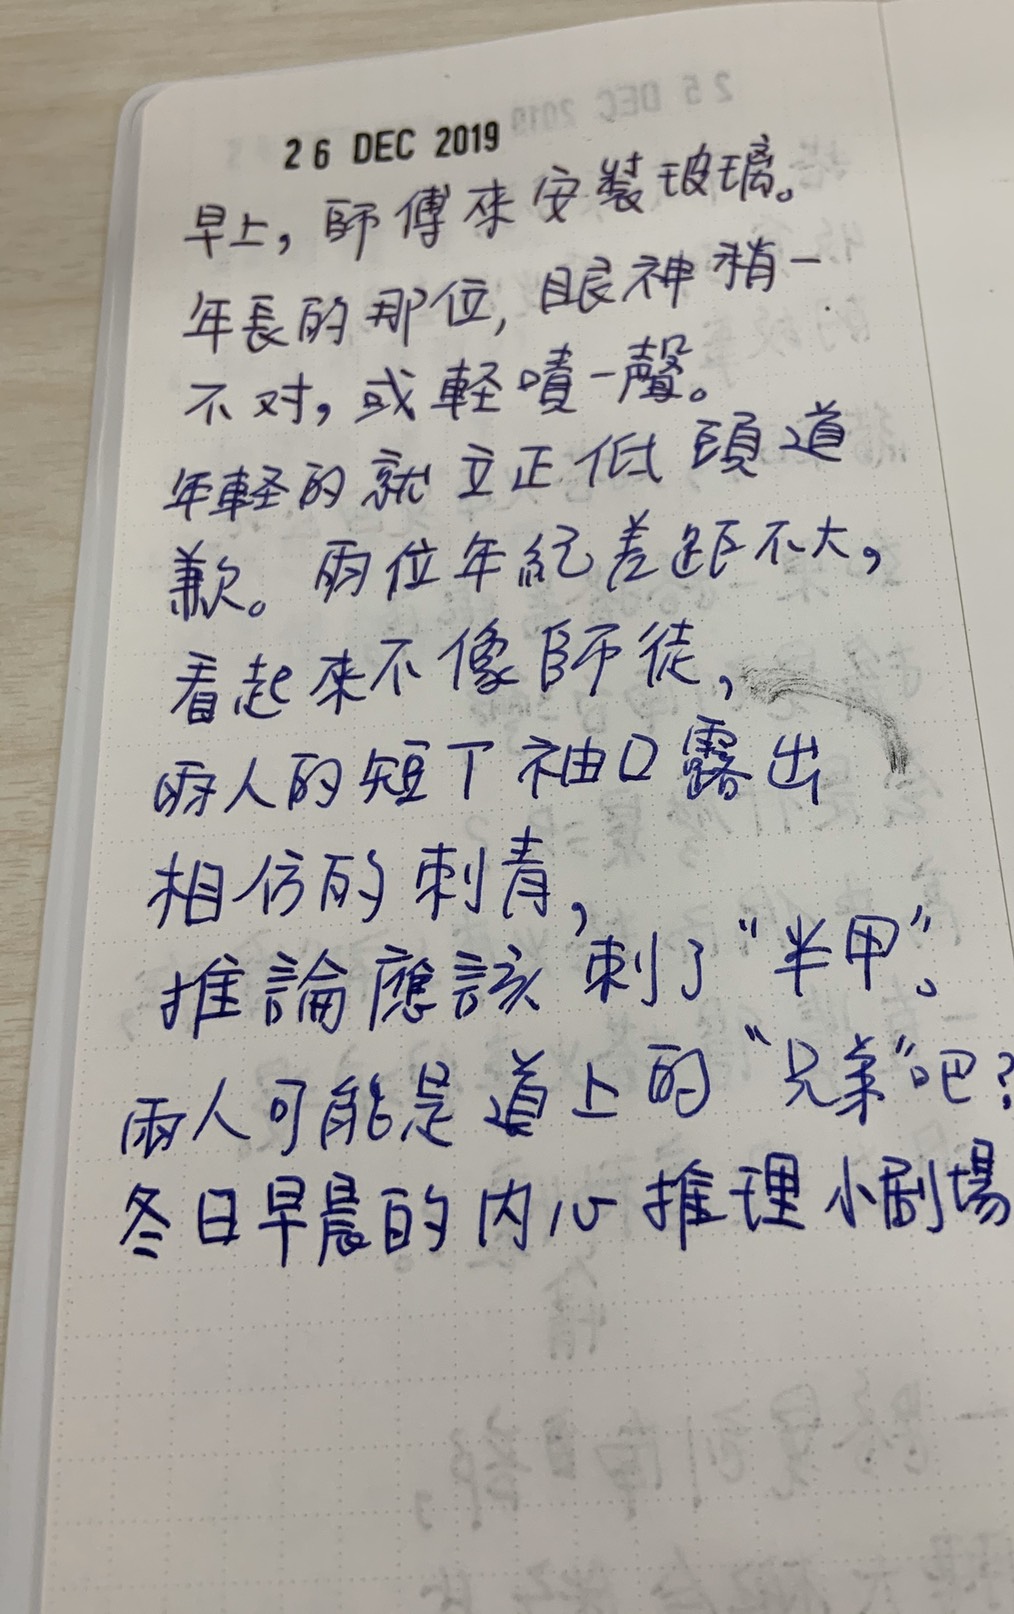 26 DEC 2019
早上，師傅來安裝玻璃。
年長的那位，眼神稍一
不对，或軽嘖一聲。
年軽的就立正低頭道
歉。兩位年紀差距不大，
看起來不像師徒，
兩人的短T袖口露出
相仿的刺青，
推論應該刺了“半甲”。
兩人可能是道上的“兄弟”吧？
冬日早晨的内心推理小劇場